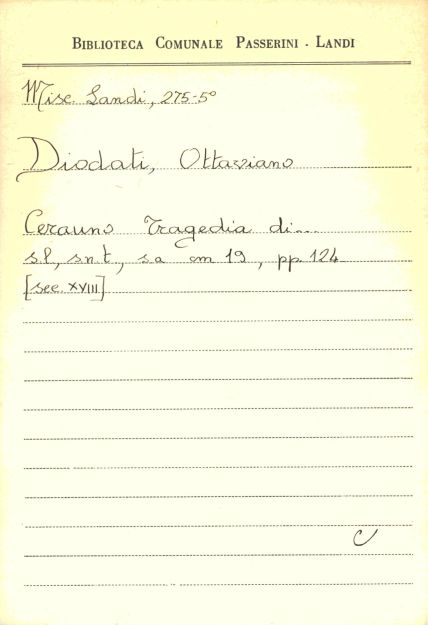 BIBLIOTECA COMUNALE PASSERINI - LANDI
Misc. Landi, 275-5°
Diodati, Ottaviano
Cerauno Tragedia di...
s.l., s.n.t., s.a cm 19, pp. 124
[sec. XVIII]
C